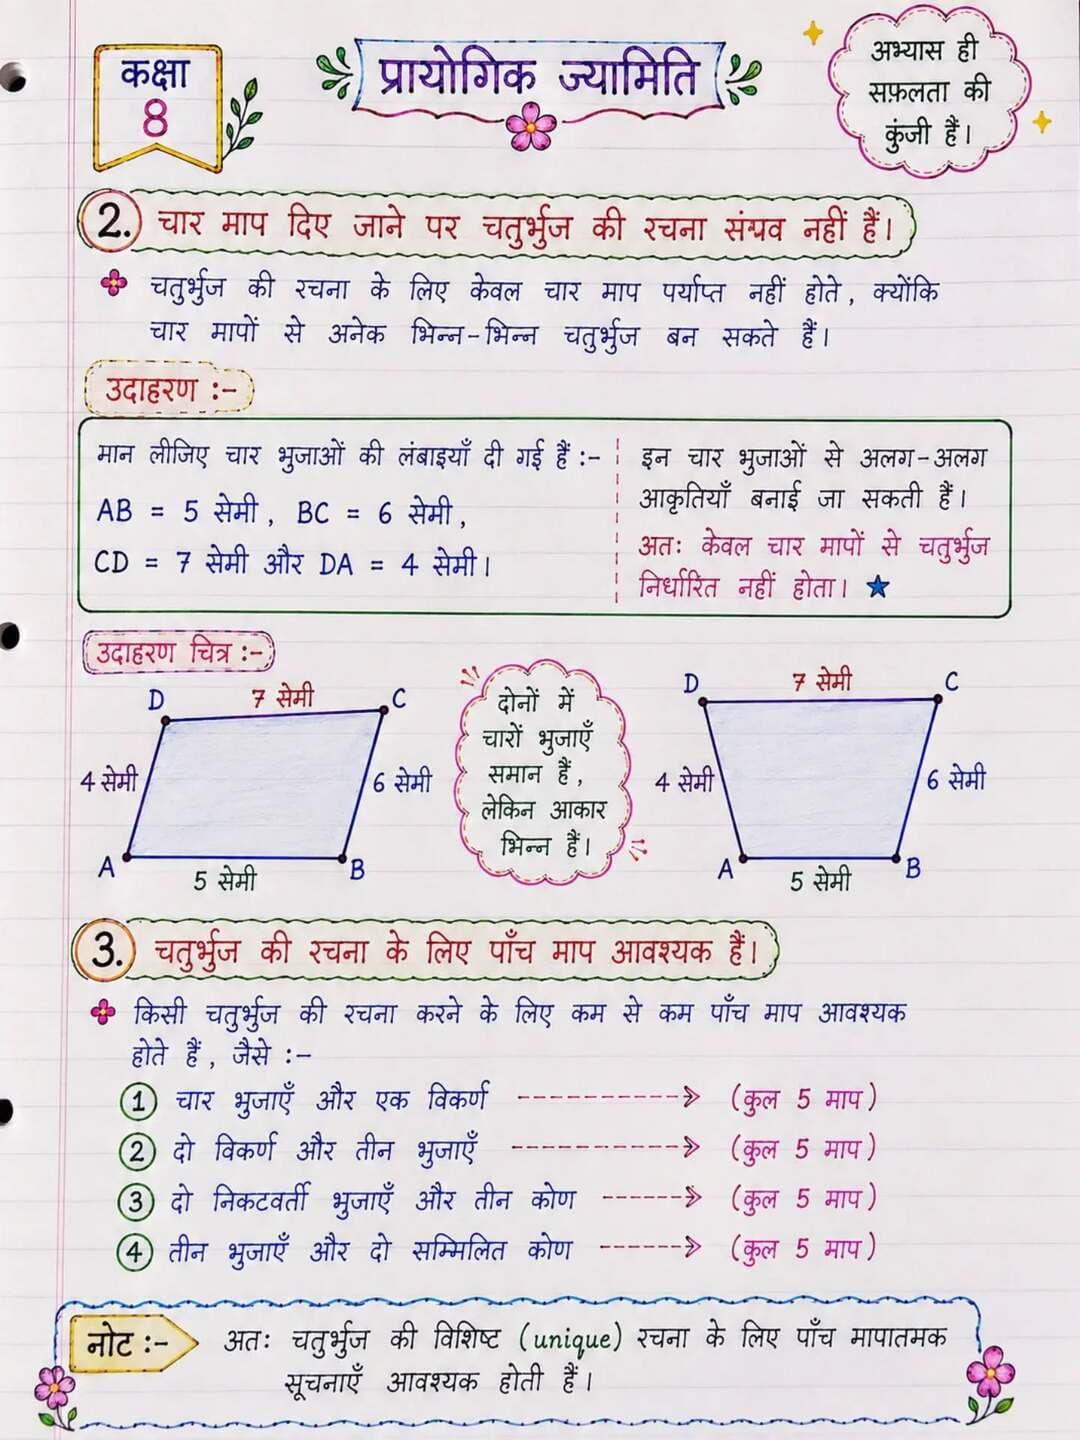 कक्षा
8
प्रायोगिक ज्यामिति
अभ्यास ही
सफ़लता की
कुंजी हैं।
2. चार माप दिए जाने पर चतुर्भुज की रचना नहीं हैं।
चतुर्भुज की रचना के लिए केवल चार माप पर्याप्त नहीं होते, क्योंकि
चार मापों से अनेक भिन्न-भिन्न चतुर्भुज बन सकते हैं।
उदाहरण :-
मान लीजिए चार भुजाओं की लंबाइयाँ दी गई हैं :-
AB = 5 सेमी, BC = 6 सेमी,
CD = 7 सेमी और DA = 4 सेमी।
इन चार भुजाओं से अलग-अलग
आकृतियाँ बनाई जा सकती हैं।
अतः केवल चार मापों से चतुर्भुज
निर्धारित नहीं होता। ★
उदाहरण चित्र :-
D 7 सेमी C
4 सेमी 6 सेमी
A 5 सेमी B
दोनों में
चारों भुजाएँ
समान हैं,
लेकिन आकार
भिन्न हैं।
D 7 सेमी C
4 सेमी 6 सेमी
A 5 सेमी B
3. चतुर्भुज की रचना के लिए पाँच माप आवश्यक हैं।
किसी चतुर्भुज की रचना करने के लिए कम से कम पाँच माप आवश्यक
होते हैं, जैसे :-
1 चार भुजाएँ और एक विकर्ण (कुल 5 माप)
2 दो विकर्ण और तीन भुजाएँ (कुल 5 माप)
3 दो निकटवर्ती भुजाएँ और तीन कोण (कुल 5 माप)
4 तीन भुजाएँ और दो सम्मिलित कोण (कुल 5 माप)
नोट :- अतः चतुर्भुज की विशिष्ट (unique) रचना के लिए पाँच मापातमक
सूचनाएँ आवश्यक होती हैं।